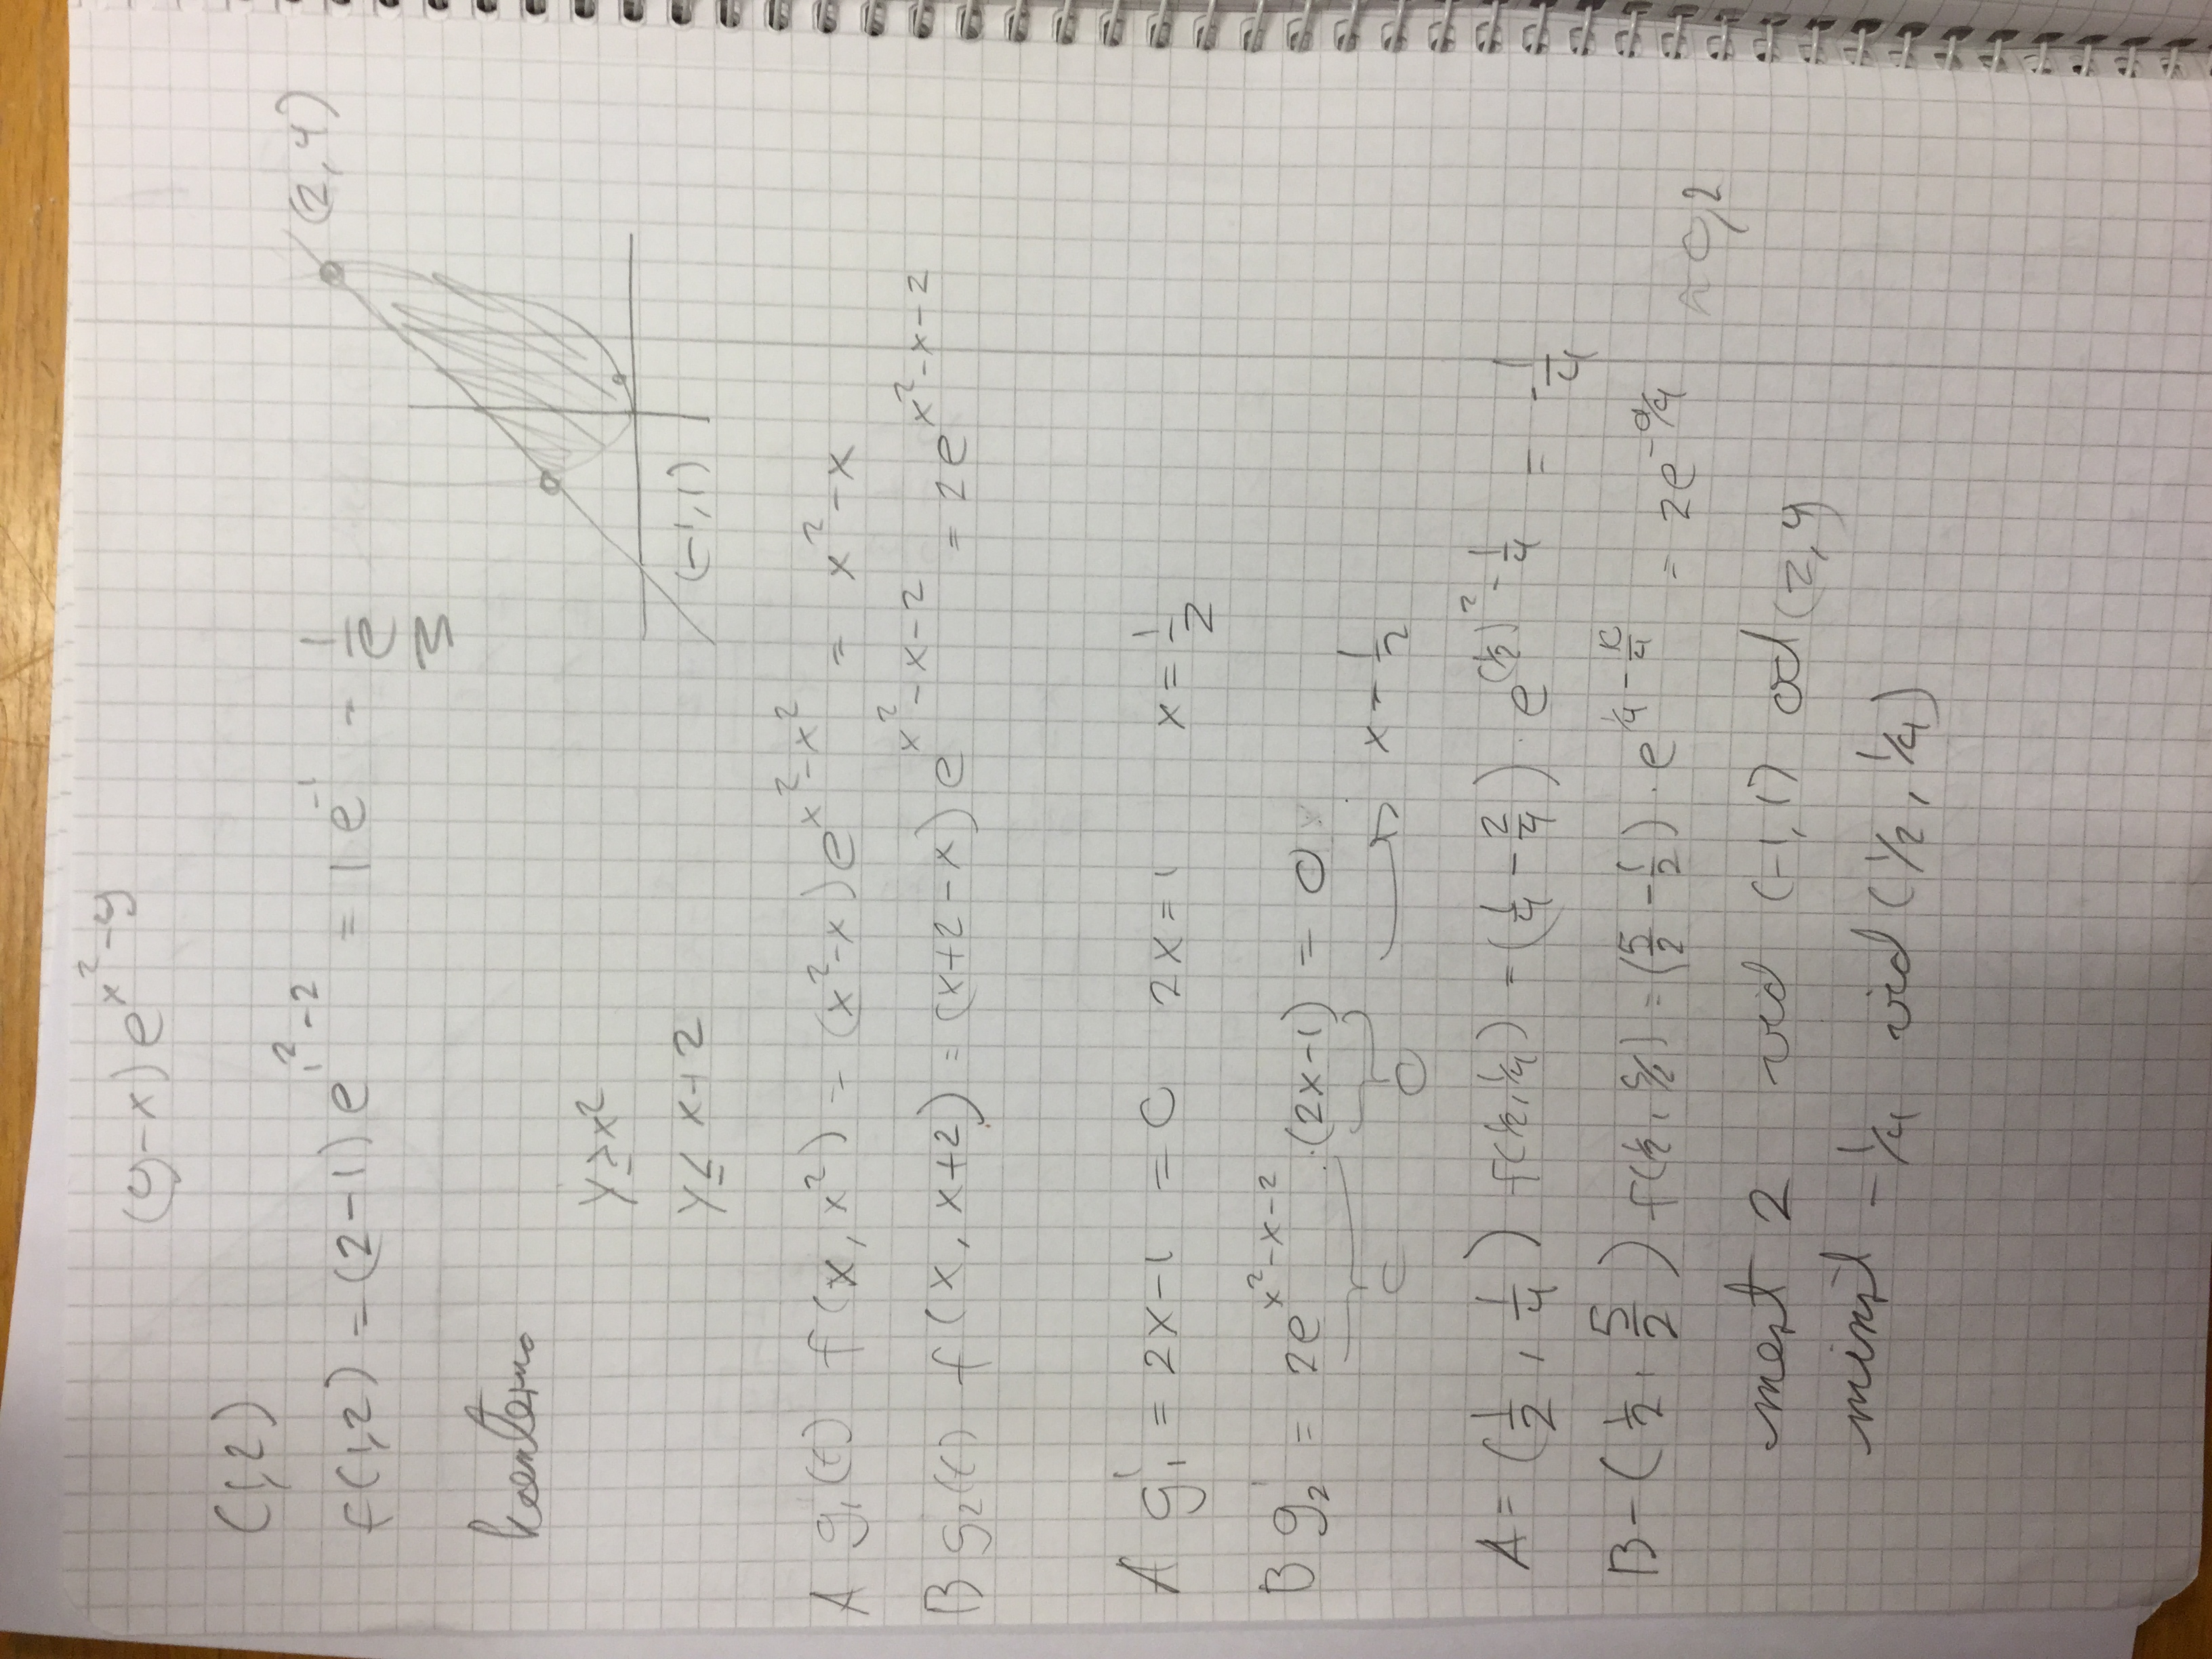 (y-x) e^{x^2-y}
(1,2)
f(1,2) = (2-1) e^{1^2-2} = 1 e^{-1} = \frac{1}{e}
(2,4)
kanterna
y ≥ x^2
y ≤ x+2
(-1,1)
A g_1(t) f(x, x^2) = (x^2-x) e^{x^2-x^2} = x^2-x
B g_2(t) f(x, x+2) = (x+2-x) e^{x^2-x-2} = 2e^{x^2-x-2}
A g_1' = 2x-1 = 0 2x=1 x=\frac{1}{2}
B g_2' = 2e^{x^2-x-2} · (2x-1) = 0
x = \frac{1}{2}
A = (\frac{1}{2}, \frac{1}{4}) f(1/2, 1/4) = (\frac{1}{4} - \frac{2}{4}) · e^{(1/2)^2 - \frac{1}{4}} = -\frac{1}{4}
B - (\frac{1}{2}, \frac{5}{2}) f(1/2, 5/2) = (\frac{5}{2} - \frac{1}{2}) · e^{1/4 - \frac{10}{4}} = 2e^{-9/4} ≈ 0,2
mest 2 vid (-1,1) od (2,4)
minst -1/4 vid (1/2, 1/4)